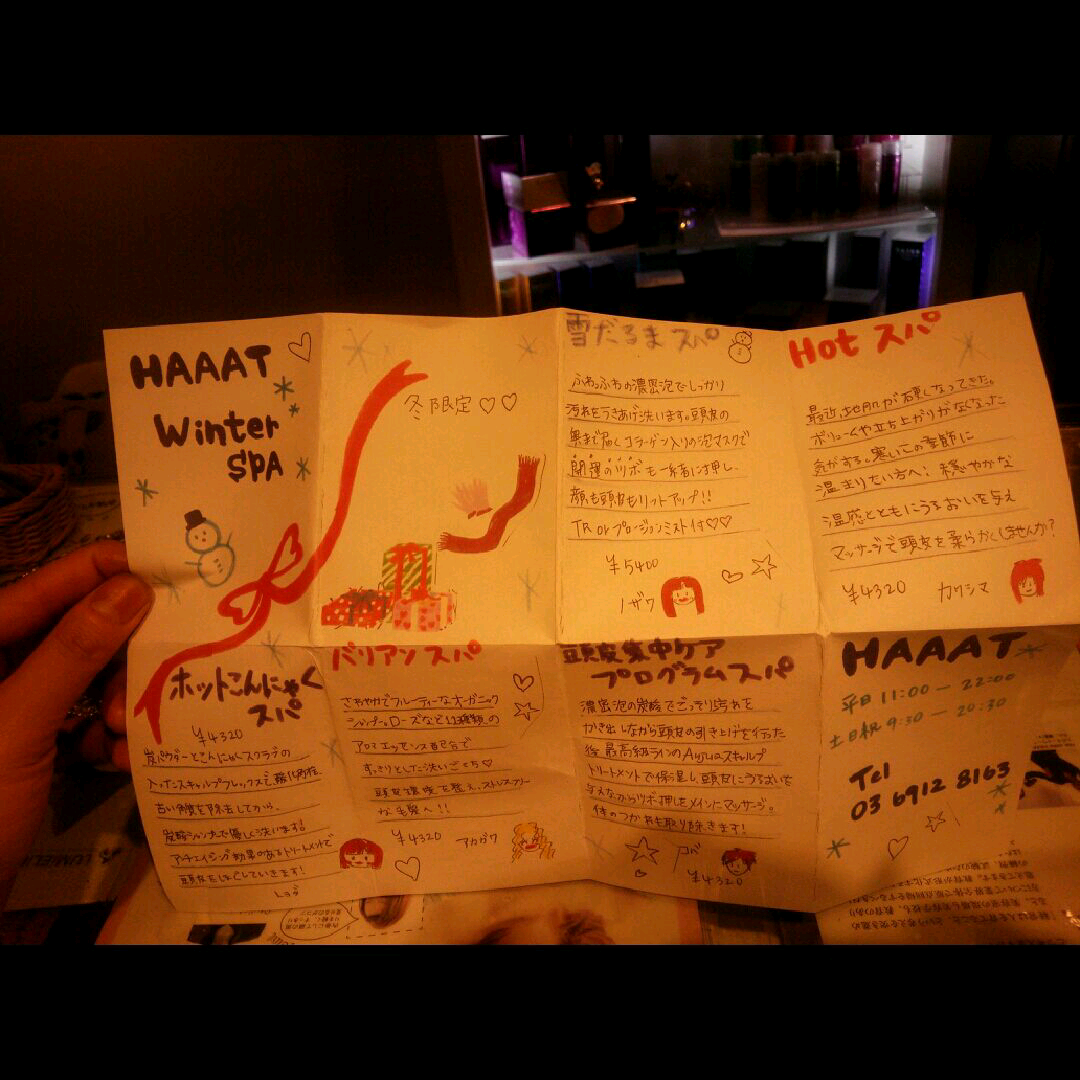 HAAAT
Winter
SPA
冬限定♡♡
雪だるまスパ
ふわっふわの濃密泡でしっかり
汚れをうきあげ洗います。頭皮の
奥まで届くコラーゲン入りの泡マスクで
開運のツボも一緒に押し、
顔も頭皮もリフトアップ!!
TR or フュージョンミスト付♡♡
¥5400
ノザワ
Hot スパ
最近、地肌が固くなってきた。
ボリュームや立ち上がりがなくなった
気がする。寒いこの季節に
温まりたい方へ: 穏やかな
温感とともにうるおいを与え
マッサージで頭皮を柔らかくしませんか?
¥4320
カワシマ
ホットこんにゃく
スパ
¥4320
炭パウダーとこんにゃくスクラブの
古い角質を除去してから、
炭酸シャンプーで優しく洗います!
アンチエイジング効果のあるトリートメントで
頭皮をほぐしていきます!
バリアン スパ
さわやかでフルーティーなオーガニック
シャンプー。ローズなど12種類の
アロマエッセンス配合で
すっきりとした洗いごこち♡
頭皮環境を整え、ストレスフリー
な毛髪へ!!
¥4320
アカガワ
頭皮集中ケア
プログラムスパ
濃密泡の炭酸でごっそり汚れを
かき出しながら頭皮の引き上げを行った
後、最高級ラインのAujuaスキャルプ
トリートメントで保湿し、頭皮にうるおいを
与えながらツボ押しをメインにマッサージ。
体のつかれも取り除きます!
¥4320
HAAAT
平日 11:00 - 22:00
土日祝 9:30 - 20:30
Tel
03 6912 8163